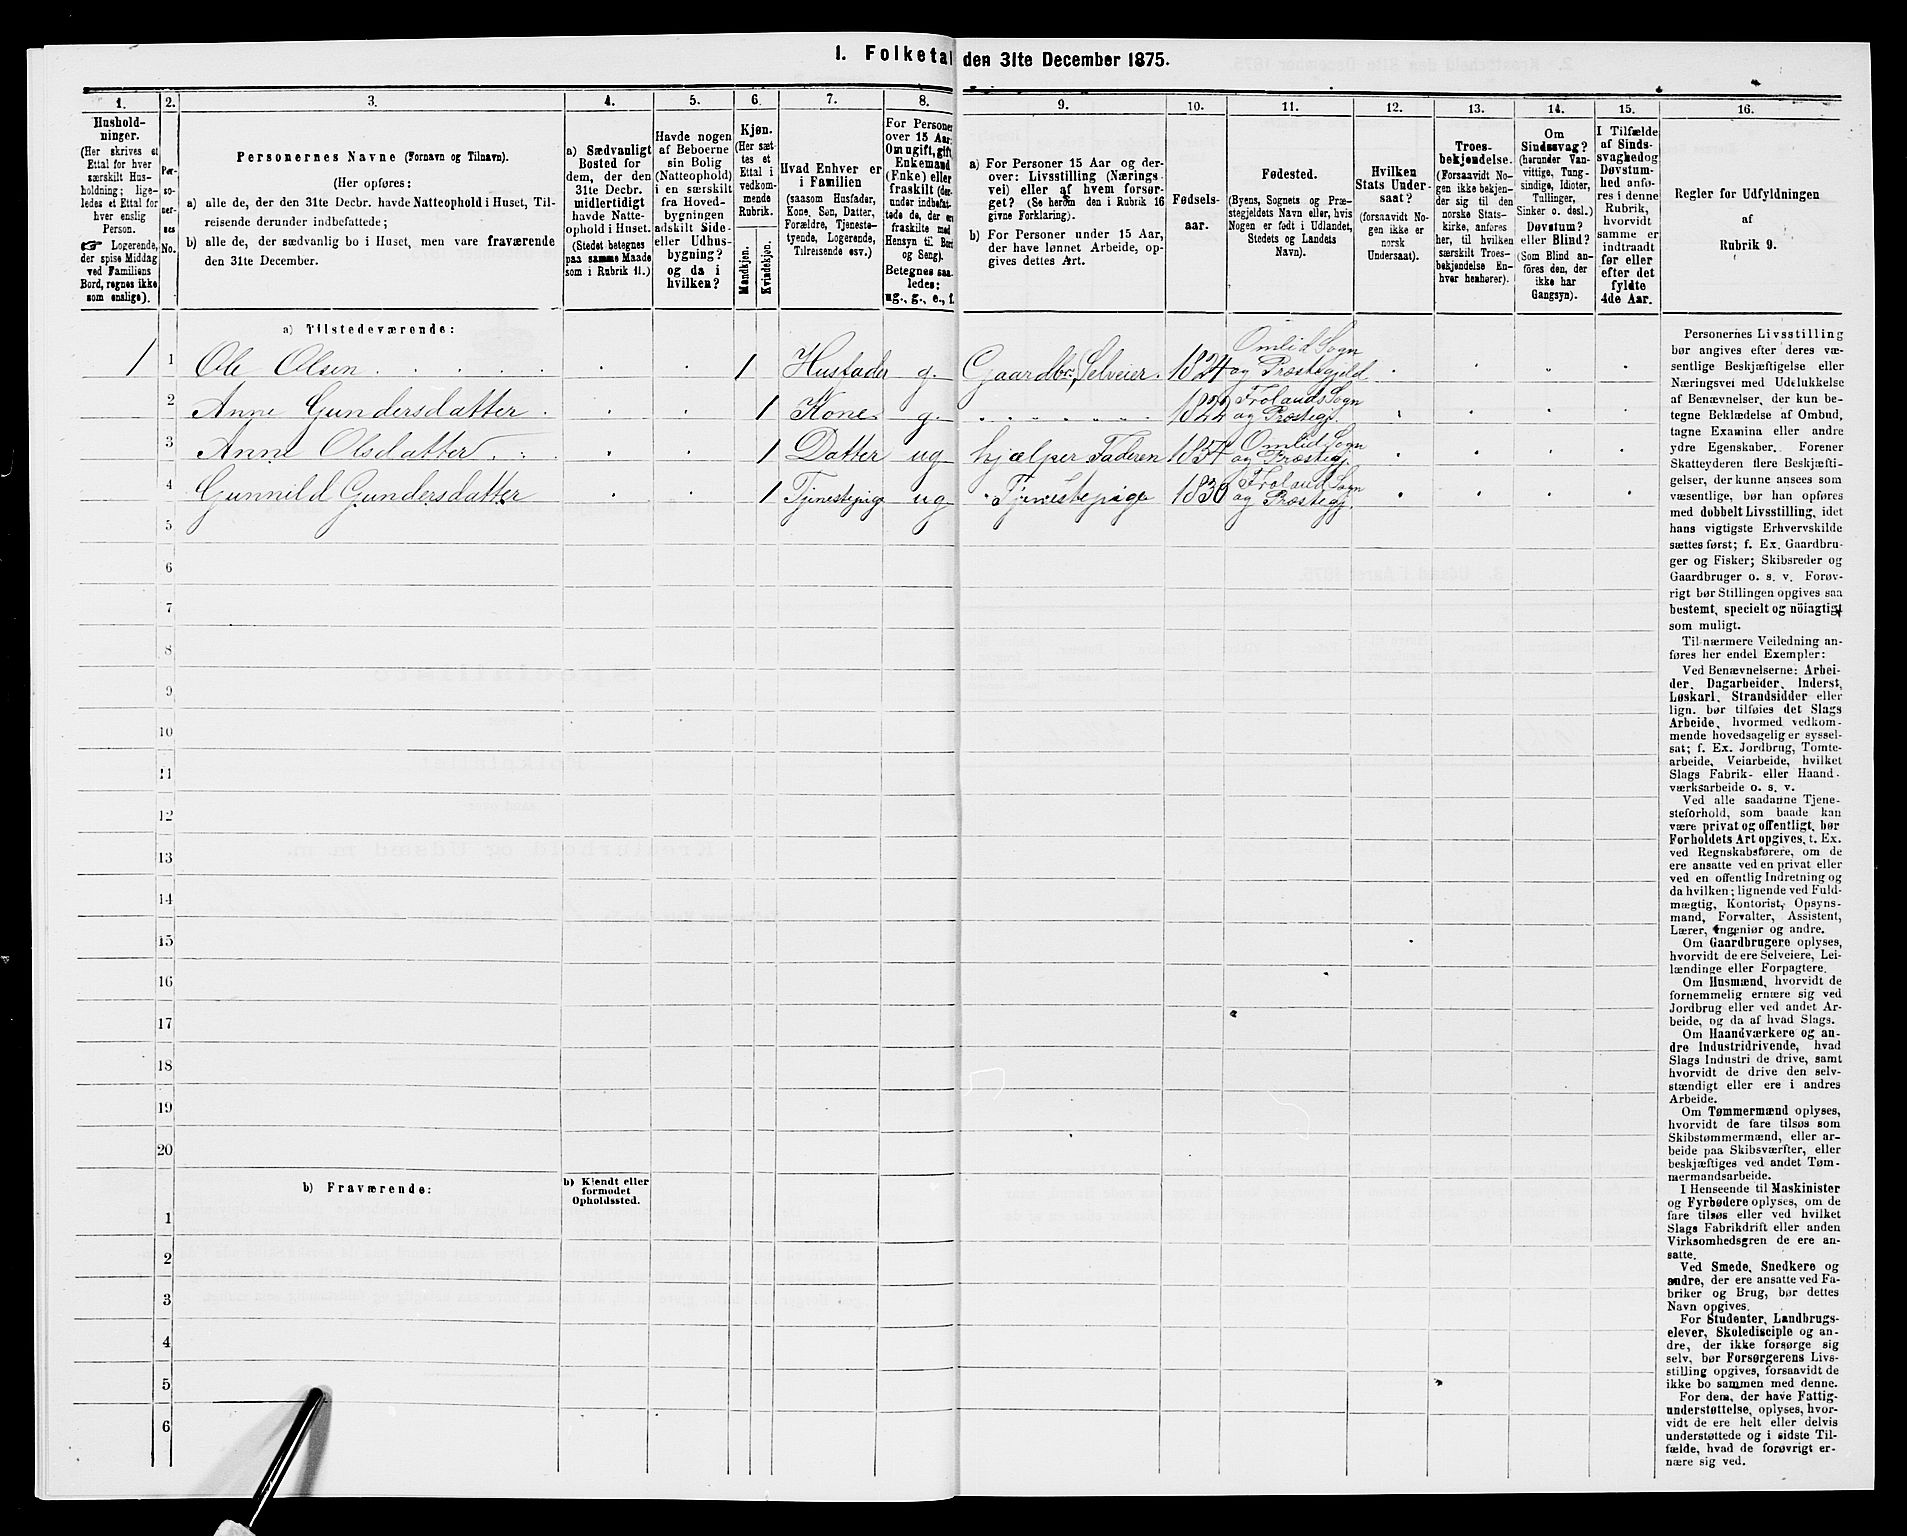 1. Folketal den 31te December 1875.
1.
2.
3.
4.
5.
6.
7.
8.
9.
10.
11.
12.
13.
14.
15.
16.
Hushold-
ninger.
(Her skrives et
Ettal for hver
særskilt Hus-
holdning; lige-
ledes et Ettal for
hver enslig
Person.
☞ Logerende,
der spise Middag
ved Familiens
Bord, regnes ikke
som enslige).
Per-
so-
ner-
nes
No.
Personernes Navne (Fornavn og Tilnavn).
(Her opføres:
a) alle de, der den 31te Decbr. havde Natteophold i Huset, Til-
reisende derunder indbefattede;
b) alle de, der sædvanlig bo i Huset, men vare fraværende
den 31te December.
a) Sædvanligt
Bosted for
dem, der den
31te Decbr.
midlertidigt
havde Natte-
ophold i Huset.
(Stedet betegnes
paa samme Maade
som i Rubrik 11.)
Havde nogen
af Beboerne
sin Bolig
(Natteophold)
i en særskilt
fra Hoved-
bygningen
adskilt Side-
eller Udhus-
bygning?
og da i
hvilken?
Kjøn.
(Her sæt-
tes et
Ettal i
vedkom-
mende
Rubrik.
Mandkjøn.
Kvindekjøn.
Hvad Enhver er
i Familien
(saasom Husfader,
Kone, Søn, Datter,
Forældre, Tjeneste-
tyende, Logerende,
Tilreisende osv.)
For Personer
over 15 Aar:
Om ugift, gift,
Enkemand
(Enke) eller
fraskilt (der-
under indbefat-
tede de, der ere
fraskilte med
Hensyn til Bord
og Seng).
Betegnes saa-
ledes:
ug., g., e., f.
a) For Personer 15 Aar og der-
over: Livsstilling (Nærings-
vei) eller af hvem forsør-
get? (Se herom den i Rubrik 16
givne Forklaring).
b) For Personer under 15 Aar,
der have lønnet Arbeide, op-
gives dettes Art.
Fødsels-
aar.
Fødested.
(Byens, Sognets og Præ-
stegjeldets Navn eller, hvis
Nogen er født i Udlandet,
Stedets og Landets
Navn).
Hvilken
Stats Under-
saat?
(forsaavidt No-
gen ikke er
norsk
Undersaat).
Troes-
bekjendelse.
(Forsaavidt No-
gen ikke bekjen-
der sig til den
norske Stats-
kirke, anføres
her, til hvilken
særskilt Troes-
bekjendelse En-
hver henhører).
Om
Sindssvag?
(herunder Van-
vittige, Tung-
sindige, Idioter,
Tullinger,
Sinker o. desl.)
Døvstum?
eller Blind?
(Som Blind an-
føres den, der
ikke har
Gangsyn).
I Tilfælde
af Sinds-
svaghed og
Døvstum-
hed anfø-
res i denne
Rubrik,
hvorvidt
samme er
indtraadt
før eller
efter det
fyldte
4de Aar.
Regler for Udfyldningen
af
Rubrik 9.
a) Tilstedeværende:
1 1 Ole Olsen 1 Husfader g. Gaardbr. Selveier. 1824 Omlid Sogn
og Præstegjeld
2 Anne Gundersdatter 1 Kone g. 1822 Frolands Sogn
og Præstegj.
3 Anne Olsdatter 1 Datter ug hjælper Faderen 1857 Omlid Sogn
og Præstegj.
4 Gunnild Gundersdatter 1 Tjenestepige ug Tjenestepige 1830 Froland Sogn
og Præstegj.
5
6
7
8
9
10
11
12
13
14
15
16
17
18
19
20
b) Fraværende:
b) Kjendt eller
formodet
Opholdssted.
1
2
3
4
5
6
Personernes Livsstilling
bør angives efter deres væ-
sentlige Beskjæftigelse eller
Næringsvei med Udelukkelse
af Benævnelser, der kun be-
tegne Beklædelse af Ombud,
tagne Examina eller andre
ydre Egenskaber. Forener
Skatteyderen flere Beskjæfti-
gelser, der kunne ansees som
væsentlige, bør han opføres
med dobbelt Livsstilling, idet
hans vigtigste Erhvervskilde
sættes først; f. Ex. Gaardbru-
ger og Fisker; Skibsreder og
Gaardbruger o. s. v. Forøv-
rigt bør Stillingen opgives saa
bestemt, specielt og nöiagtigt
som muligt.
Til nærmere Veiledning an-
føres her endel Exempler:
Ved Benævnelserne: Arbei-
der, Dagarbeider, Inderst,
Løskarl, Strandsidder eller
lign. bør tilføies det Slags
Arbeide, hvormed vedkom-
mende hovedsagelig er syssel-
sat; f. Ex. Jordbrug, Tomte-
arbeide, Veiarbeide, hvilket
Slags Fabrik- eller Haand-
værksarbeide o. s. v.
Ved alle saadanne Tjene-
steforhold, som baade kan
være privat og offentligt, bør
Forholdets Art opgives, t. Ex.
ved Regnskabsførere, om de
ere ansatte ved en privat eller
ved en offentlig Indretning og
da hvilken; lignende ved Fuld-
mægtig, Kontorist, Opsyns-
mand, Forvalter, Assistent,
Lærer, Ingeniør og andre.
Om Gaardbrugere oplyses,
hvorvidt de ere Selveiere, Lei-
lændinge eller Forpagtere.
Om Husmænd, hvorvidt de
fornemmelig ernære sig ved
Jordbrug eller ved andet Ar-
beide, og da af hvad Slags.
Om Haandværkere og an-
dre Industridrivende, hvad
Slags Industri de drive, samt
hvorvidt de drive den selv-
stændigt eller ere i andres
Arbeide.
Om Tømmermænd oplyses,
hvorvidt de fare tilsøs som
Skibstømmermænd, eller ar-
beide paa Skibsværfter, eller
beskjæftiges ved andet Tøm-
mermandsarbeide.
I Henseende til Maskinister
og Fyrbødere oplyses, om de
fare tilsøs eller ved hvilket
Slags Fabrikdrift eller anden
Virksomhedsgren de ere an-
satte.
Ved Smede, Snedkere og
andre, der ere ansatte ved Fa-
briker og Brug, bør dettes
Navn opgives.
For Studenter, Landbrugs-
elever, Skoledisciple og an-
dre, der ikke forsørge sig
selv, bør Forsørgerens Livs-
stilling opgives, forsaavidt de
ikke bo sammen med denne.
For dem, der have Fattig-
understøttelse, oplyses, hvor-
vidt de ere helt eller delvis
understøttede og i sidste Til-
fælde, hvad de forøvrigt er-
nære sig ved.